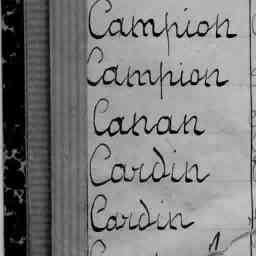 Campion
Campion
Canan
Cardin
Cardin